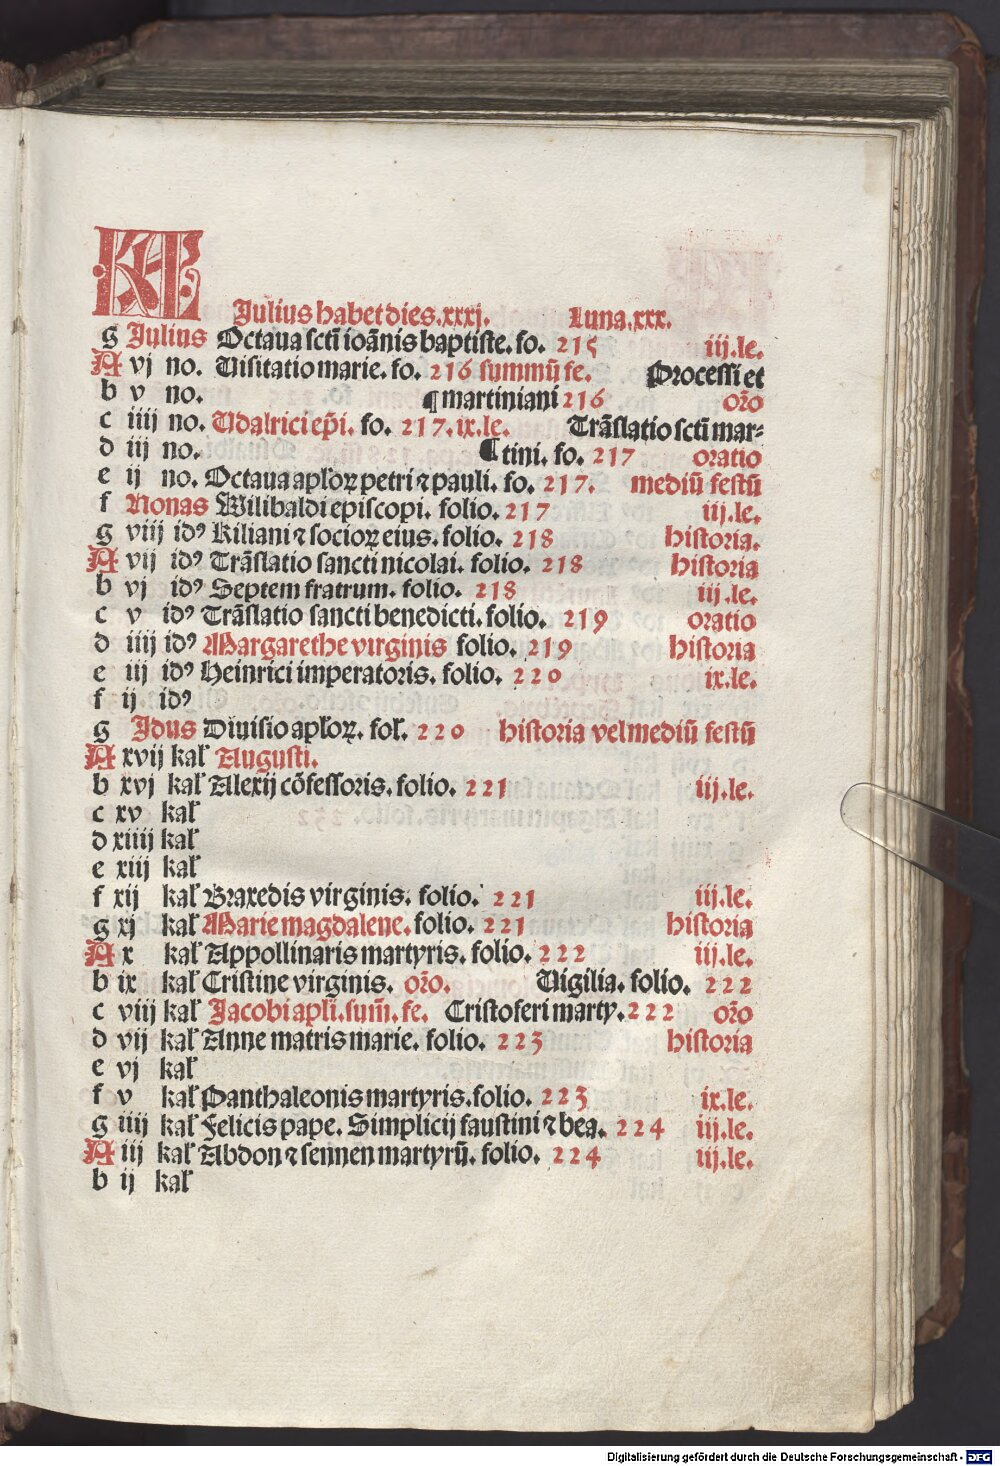 KL
Julius habet dies.xxxj. Luna.xxx.
g Julius Octaua sctī ioānis baptiste. fo. 215 iij.le.
A vj no. Uisitatio marie. fo. 216 summū fe. Processi et
b v no. ¶ martiniani 216 or̄o
c iiij no. Udalrici ep̄i. fo. 217. ix.le. Trāslatio sctī mar⸗
d iij no. ¶ tini. fo. 217 oratio
e ij no. Octaua aploꝝ petri ⁊ pauli. fo. 217. mediū festū
f Nonas Wilibaldi episcopi. folio. 217 iij.le.
g viij idꝰ Kiliani ⁊ socioꝝ eius. folio. 218 historia.
A vij idꝰ Trāslatio sancti nicolai. folio. 218 historia
b vj idꝰ Septem fratrum. folio. 218 iij.le.
c v idꝰ Trāslatio sancti benedicti. folio. 219 oratio
d iiij idꝰ Margarethe virginis folio. 219 historia
e iij idꝰ Heinrici imperatoris. folio. 220 ix.le.
f ij idꝰ
g Idus Diuisio aploꝝ. fol. 220 historia vel mediū festū
A xvij kal Augusti.
b xvj kal Alexij cōfessoris. folio. 221 iij.le.
c xv kal
d xiiij kal
e xiij kal
f xij kal Praxedis virginis. folio. 221 iij.le.
g xj kal Marie magdalene. folio. 221 historia
A x kal Appollinaris martyris. folio. 222 iij.le.
b ix kal Cristine virginis. or̄o. Uigilia. folio. 222
c viij kal Jacobi apli. sum̄. fe. Cristoferi marty. 222 or̄o
d vij kal Anne matris marie. folio. 223 historia
e vj kal
f v kal Panthaleonis martyris. folio. 223 ix.le.
g iiij kal Felicis pape. Simplicij faustini ⁊ bea. 224 iij.le.
A iij kal Abdon ⁊ sennen martyrū. folio. 224 iij.le.
b ij kal
Digitalisierung gefördert durch die Deutsche Forschungsgemeinschaft - DFG